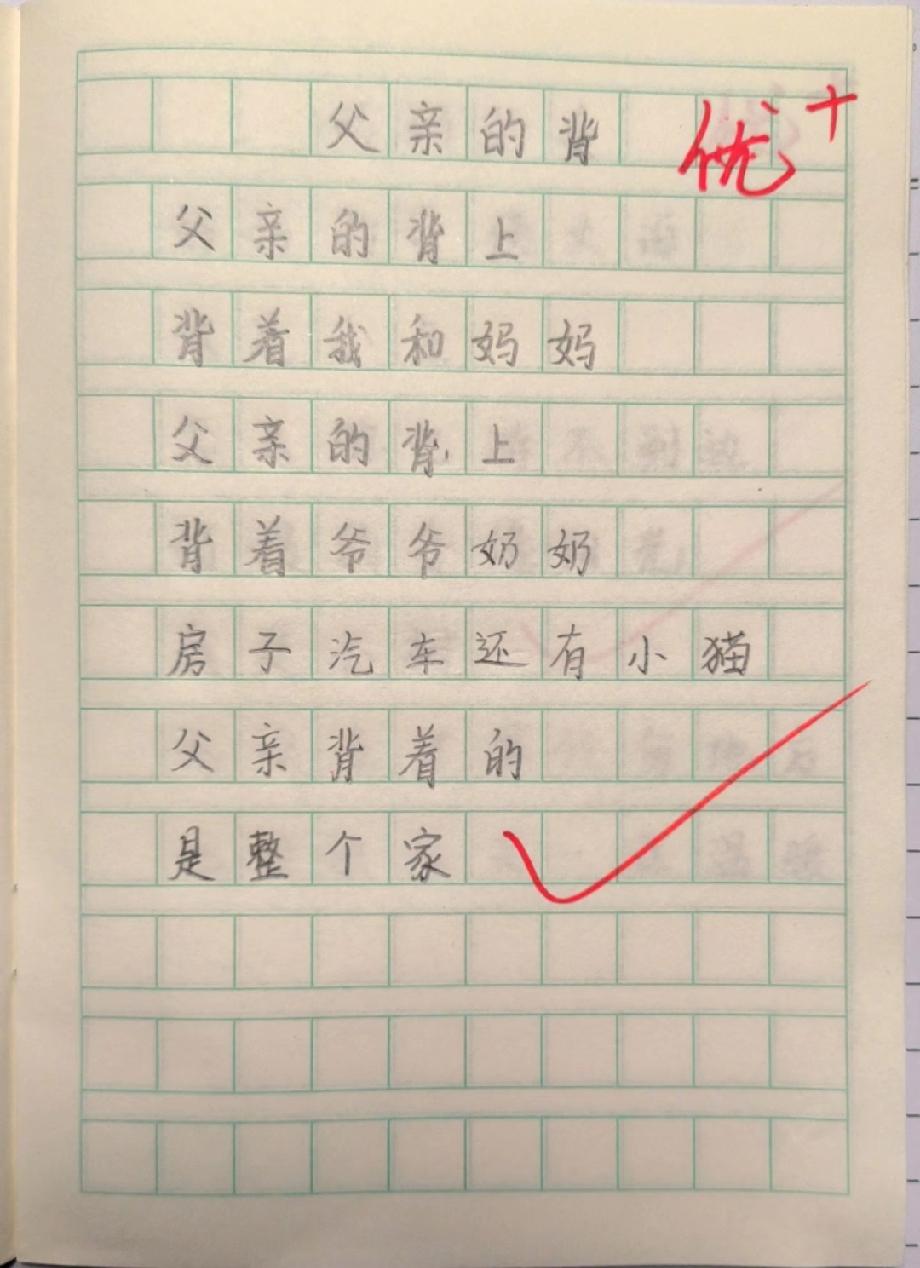 父亲的背
优+
父亲的背上
背着我和妈妈
父亲的背上
背着爷爷奶奶
房子汽车还有小猫
父亲背着的
是整个家